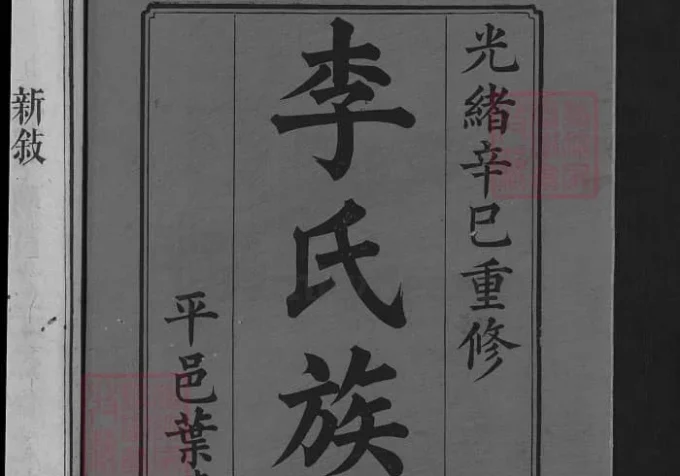 光緒辛巳重修
李氏族
平邑葉
新敍